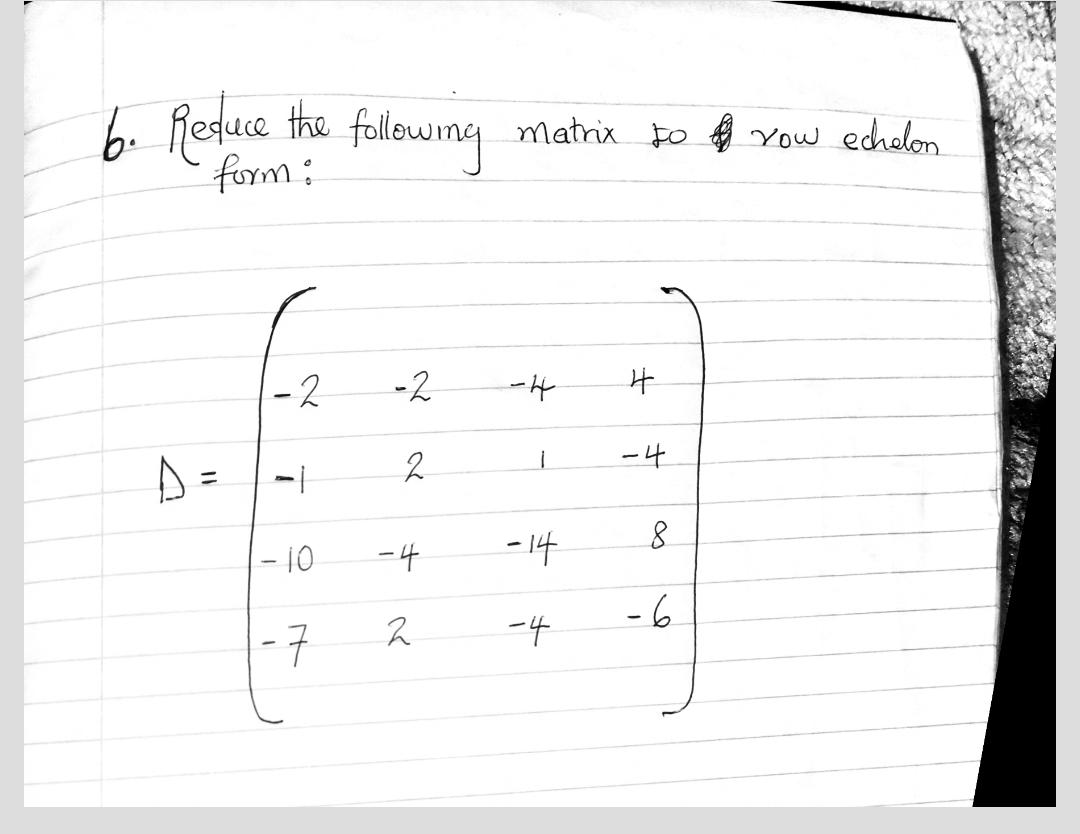 6. Reduce the following matrix to row echelon
form:
-2 -2 -4 4
D = -1 2 1 -4
-10 -4 -14 8
-7 2 -4 -6